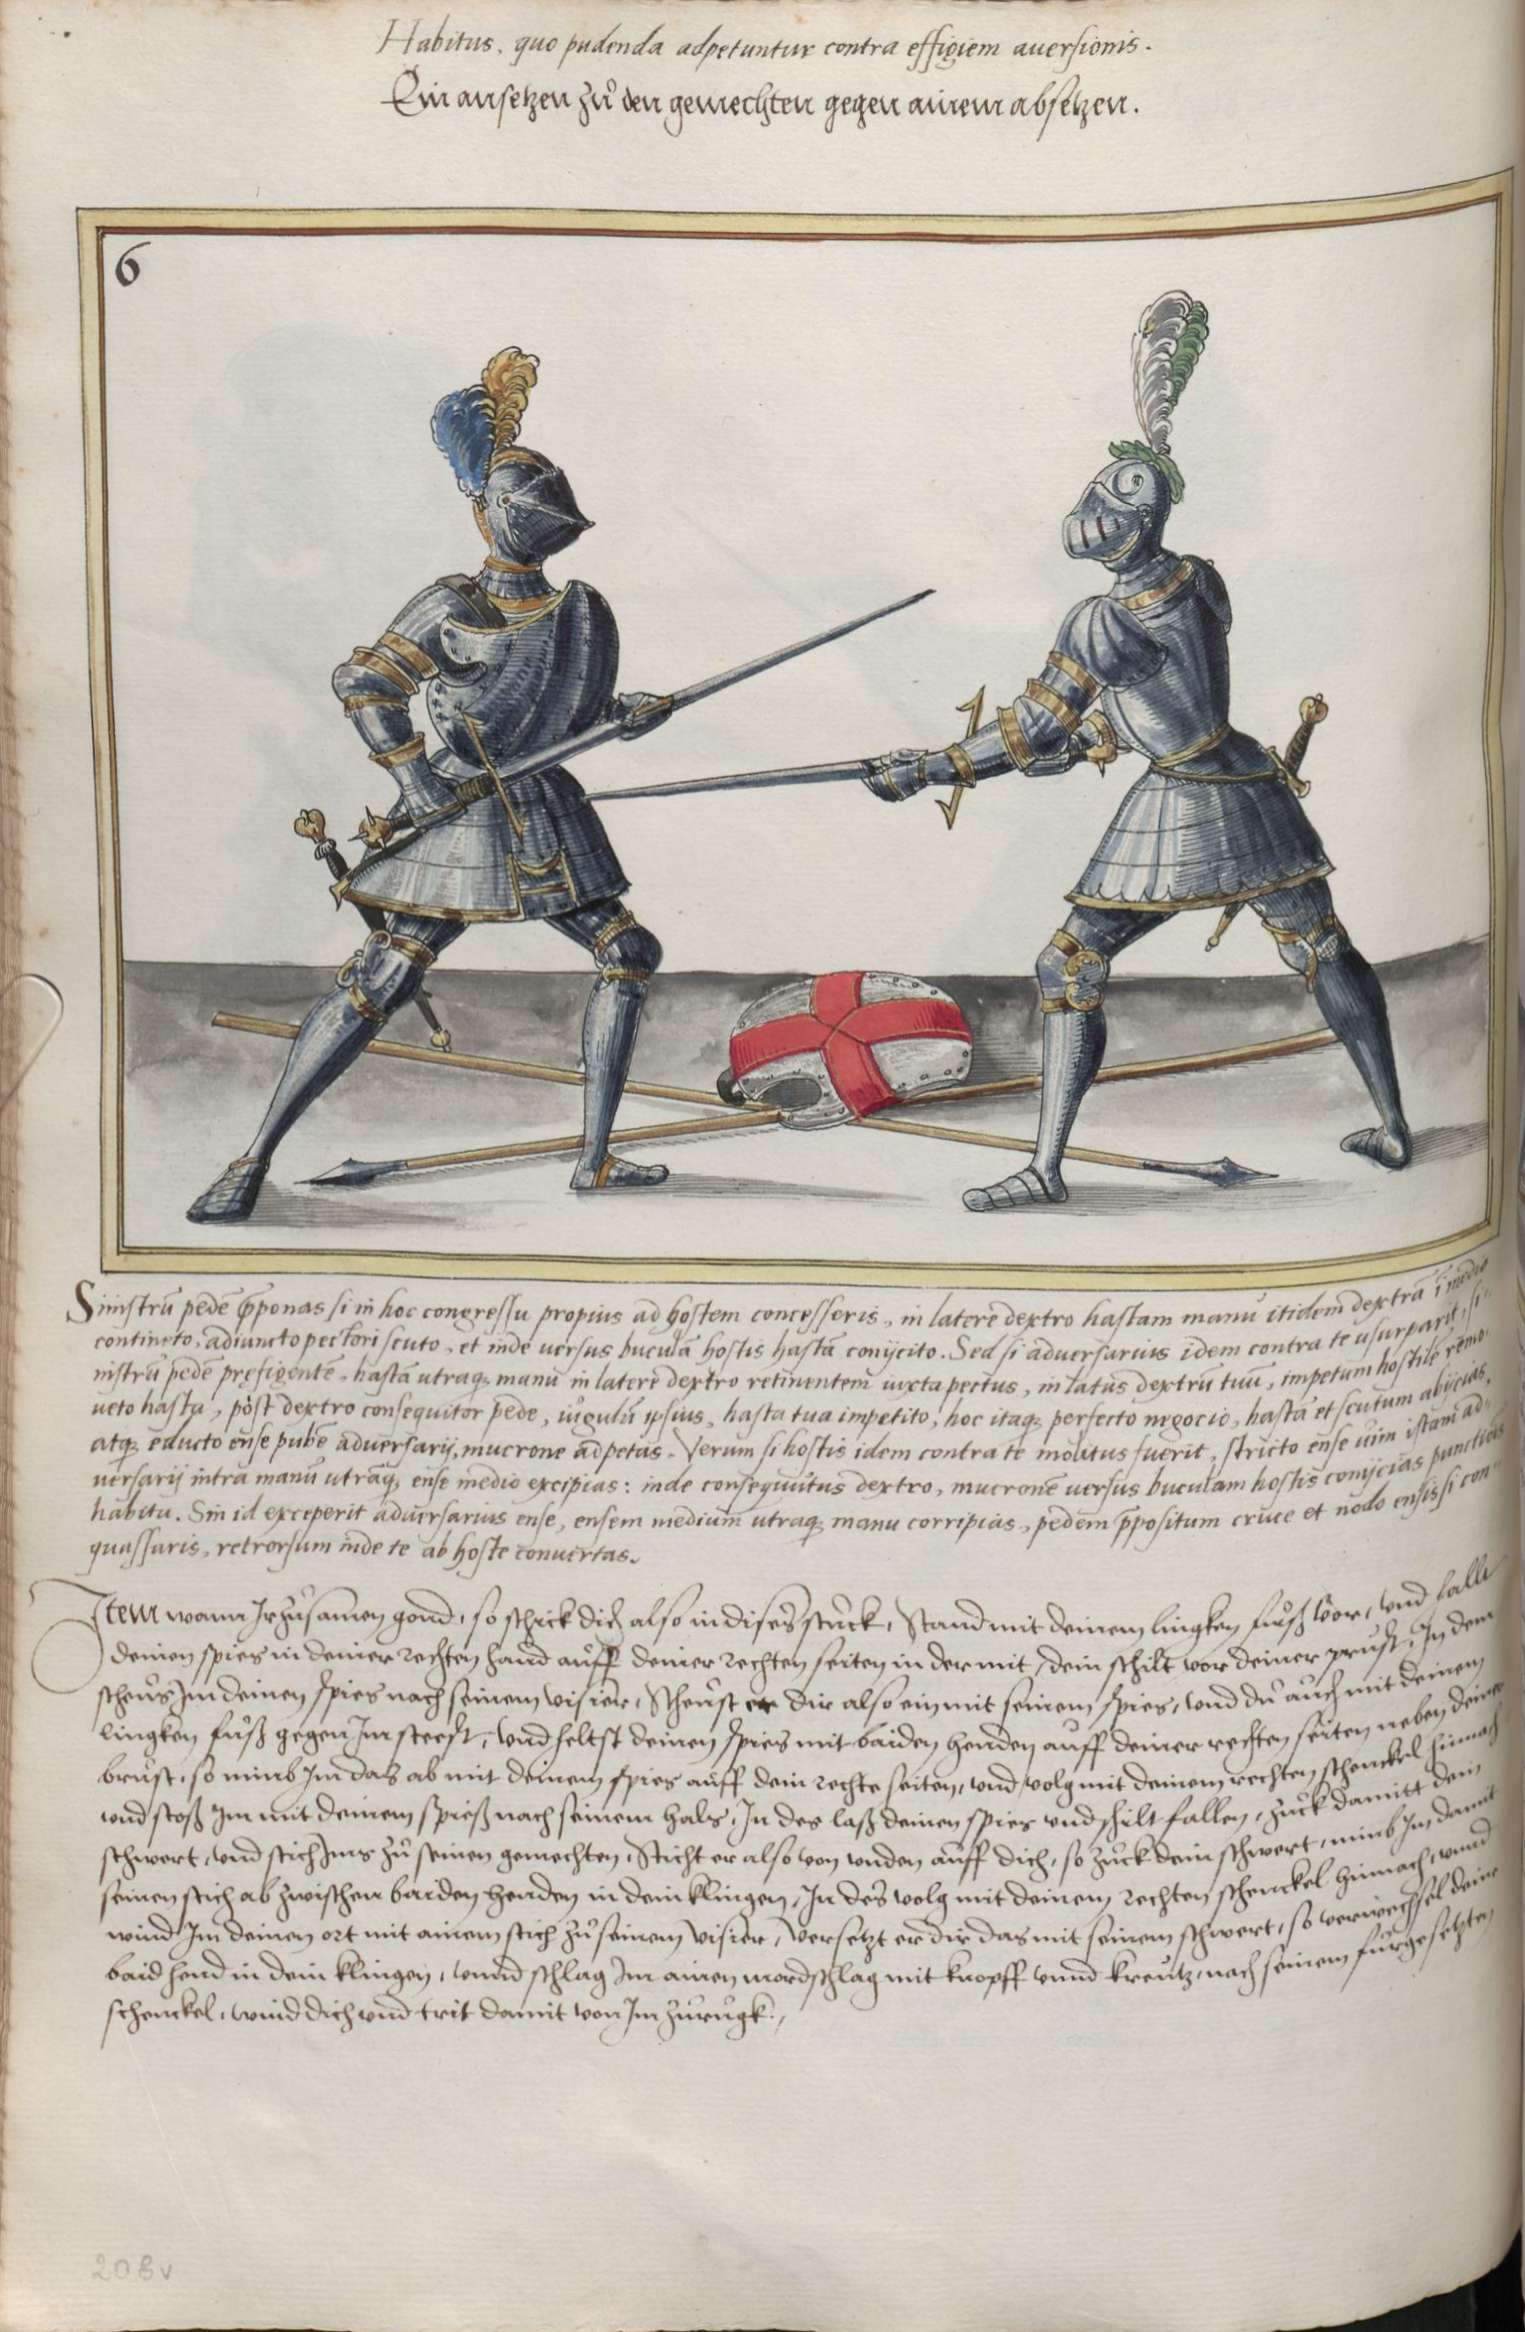 Habitus, quo pudenda adpetuntur contra effigiem auersionis.
Ein ansetzen zů den gemechten gegen ainem absetzen.
6
Sinistrũ pedẽ p̃ponas si in hoc congressu propius ad hostem concesseris, in laterẽ dextro hastam manu itidem dextrã ĩ medio
contineto, adiuncto pectori scuto, et inde uersus buculã hostis hastã conijcito. Sed si aduersarius idem contra te usurparit, si-
nistrũ pedẽ prefigentẽ, hastã utraq; manu in latere dextro retinentem iuxta pectus, in latus dextrũ tuũ, impetum hostilẽ remo-
ueto hasta, pòst dextro consequitor pede, iugulũ ipsius, hasta tua impetito, hoc itaq; perfecto negocio, hastã et scutum abijcias,
atq; educto ense pubẽ aduersarij, mucrone adpetas. Verum si hostis idem contra te molitus fuerit, stricto ense uim istam ad-
uersarij intra manũ utramq; ense medio excipias: inde consequutus dextro, mucronẽ uersus buculam hostis conijcias punctiois
habitu. Sin id exceperit aduersarius ense, ensem medium utraq; manu corripias, pedem p̃positum cruce et nodo ensis si con-
quassaris, retrorsum inde te ab hoste conuertas.
Item wann Ir zůsamen gond, so schick dich also in dises stuck, Stand mit deinem lingken fůß vor, vnd halt
deinen spies in deiner rechten hand auff deiner rechten seiten in der mit, dein schilt vor deiner prust, In dem
scheus Im deinen spies nach seinem visier, Scheust er dir also ein mit seinem spies, vnd du auch mit deinem
lingken fůß gegen Im steest, vnd heltst deinen spies mit baiden henden auff deiner rechten seiten neben deiner
brust, so nimb Im das ab mit deinem spies auff dein rechte seiten, vnd volg mit deinem rechten schenckel hinnach
vnd stoß Im mit deinem spieß nach seinem hals, In des laß deinen spies vnd schilt fallen, zuck damitt dein
schwert, vnd stich Ims zů seinen gemechten, Sticht er also von vnden auff dich, so zuck dein schwert, nimb Im damit
seinen stich ab zwischen baiden henden in dein klingen, In des volg mit deinem rechten schenckel hinnach, vnnd
wind Im deinen ort mit ainem stich zů seinem visier, Versetzt er dir das mit seinem schwert, so verwechsel deine
baid hend in dein klingen, vnnd schlag Im ainen mordschlag mit knopff vnnd kreutz, nach seinem fürgesetzten
schenckel, wind dich vnd trit damit von Im zurugk.
208v